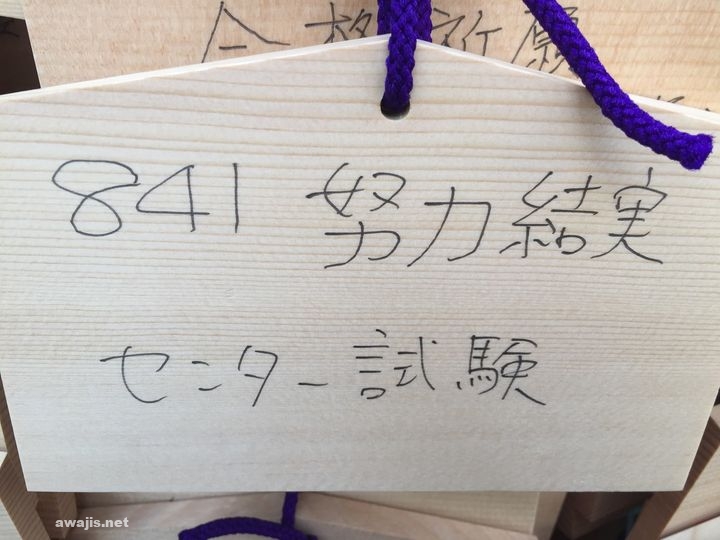 合格祈願
841 努力結実
センター試験
awajis.net